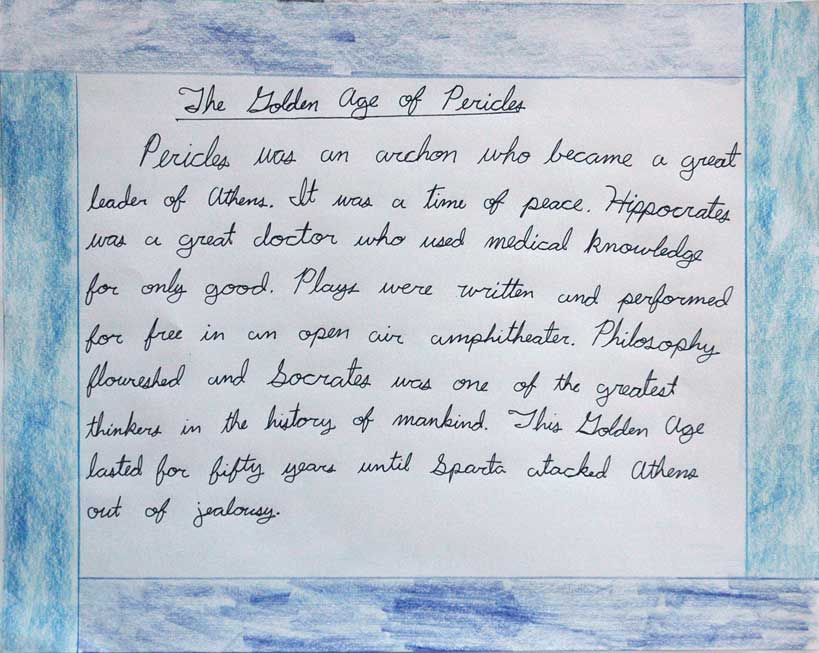 The Golden Age of Pericles
Pericles was an archon who became a great
leader of Athens. It was a time of peace. Hippocrates
was a great doctor who used medical knowledge
for only good. Plays were written and performed
for free in an open air amphitheater. Philosophy
floureshed and Socrates was one of the greatest
thinkers in the history of mankind. This Golden Age
lasted for fifty years until Sparta atacked Athens
out of jealousy.